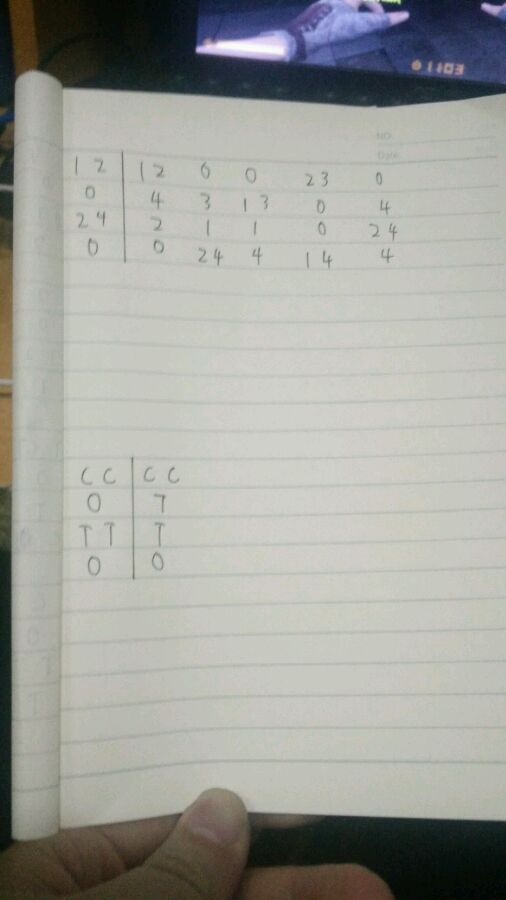 01103
NO.
Date.
1 2 | 1 2 0 0 2 3 0
0 | 4 3 1 3 0 4
2 4 | 2 1 1 0 2 4
0 | 0 2 4 4 1 4 4
C C | C C
0 | 7
T T | T
0 | 0